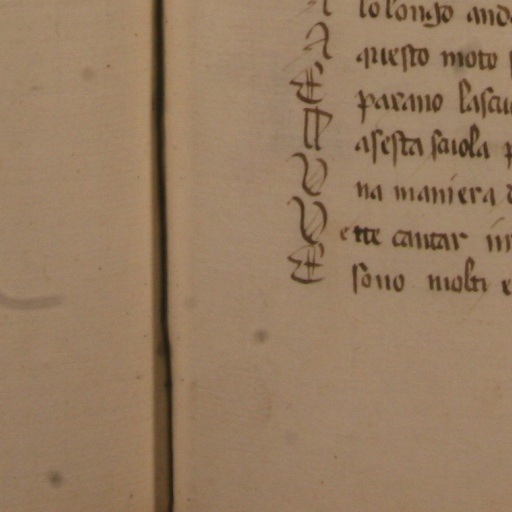 A lo longo and
A questo moto
E parano lascu
P asesta scuola p
V na maniera d
V ette cantar in
E sono molti e